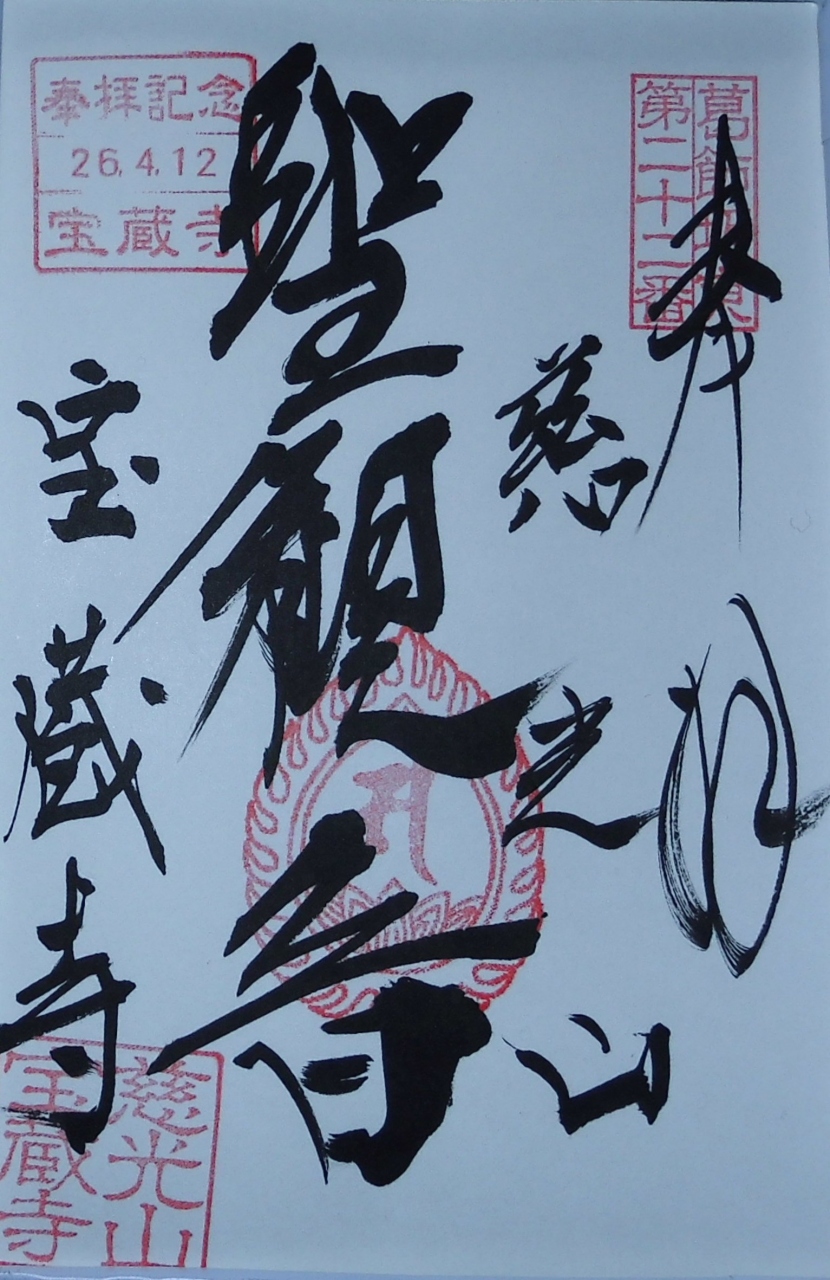 葛飾坂東
第二十二番
奉拝
慈光山
聖観音
奉拝記念
26.4.12
宝蔵寺
宝蔵寺
慈光山
宝蔵寺